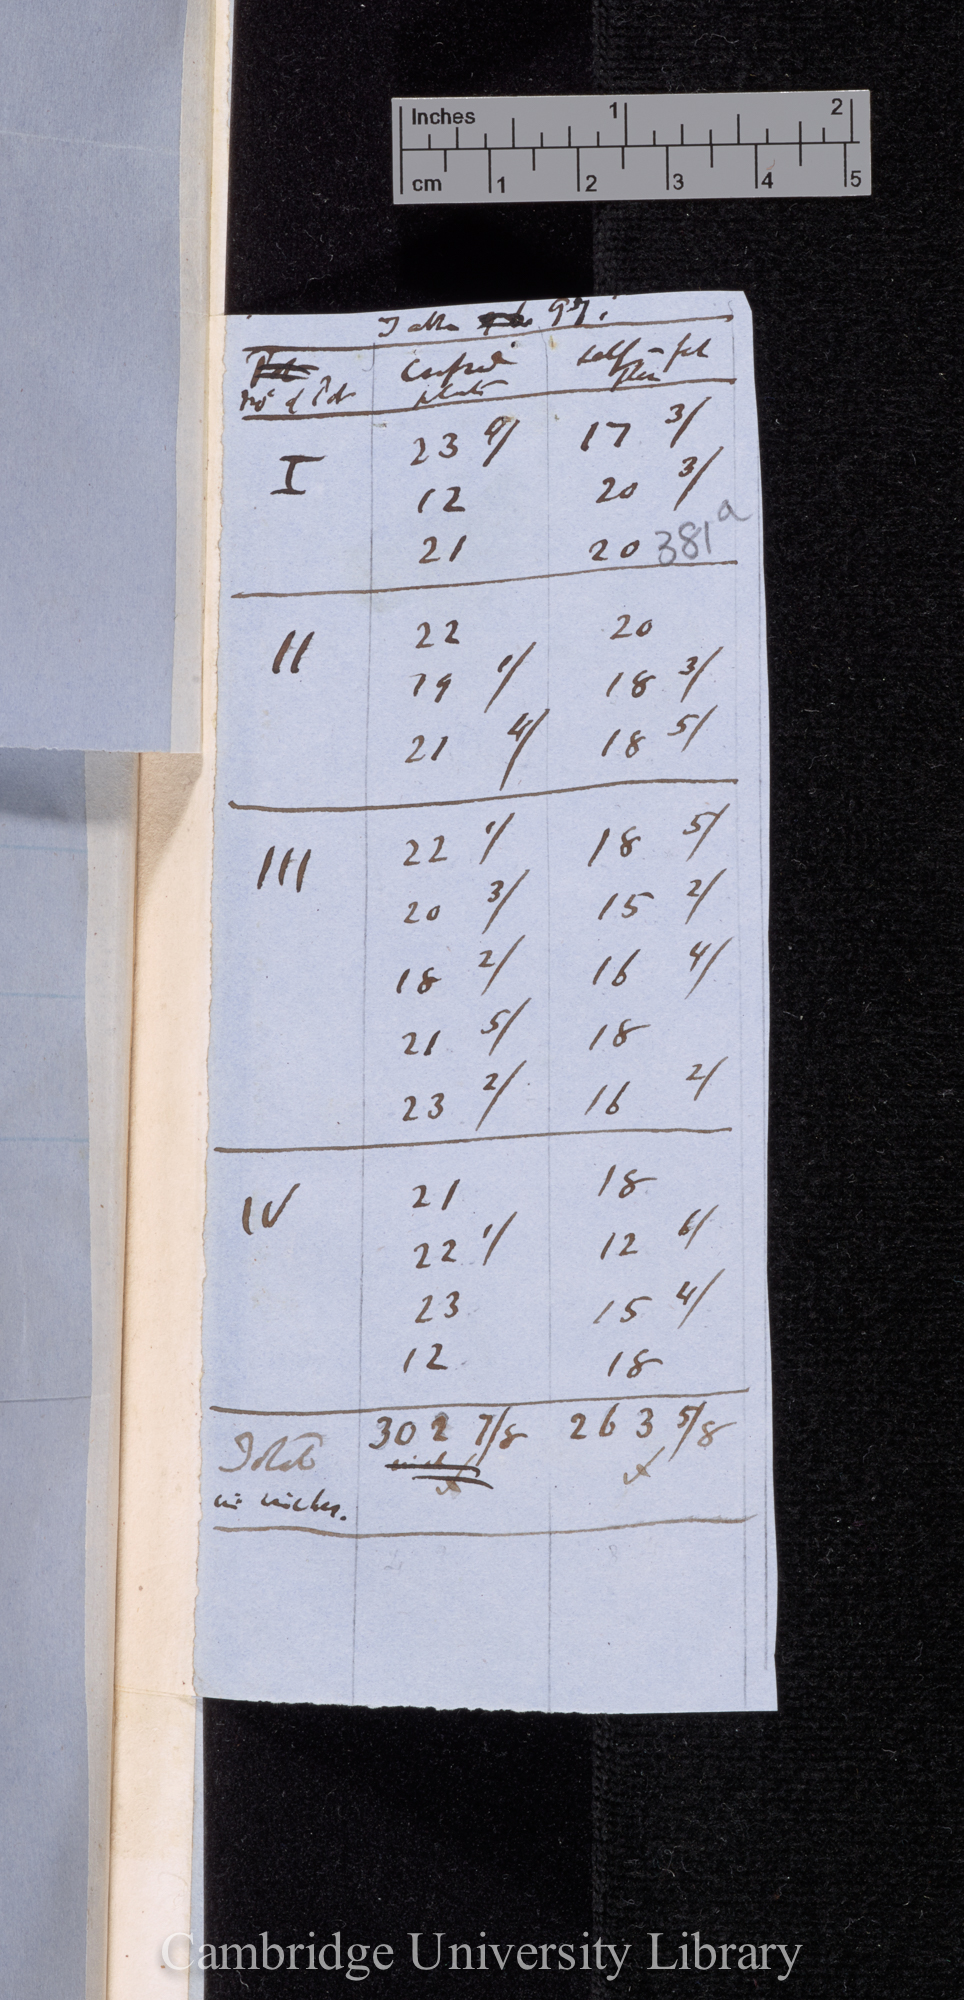 Inches 1 2
cm 1 2 3 4 5
Table 97.
No of Pot Crossed plants self-fert Plants
I 23 4/ 17 3/
12 20 3/
21 20 381a
II 22 20
19 1/ 18 3/
21 4/ 18 5/
III 22 1/ 18 5/
20 3/ 15 2/
18 2/ 16 4/
21 5/ 18
23 2/ 16 2/
IV 21 18
22 1/ 12 6/
23 15 4/
12 18
Total 302 7/8 263 5/8
in inches.
Cambridge University Library